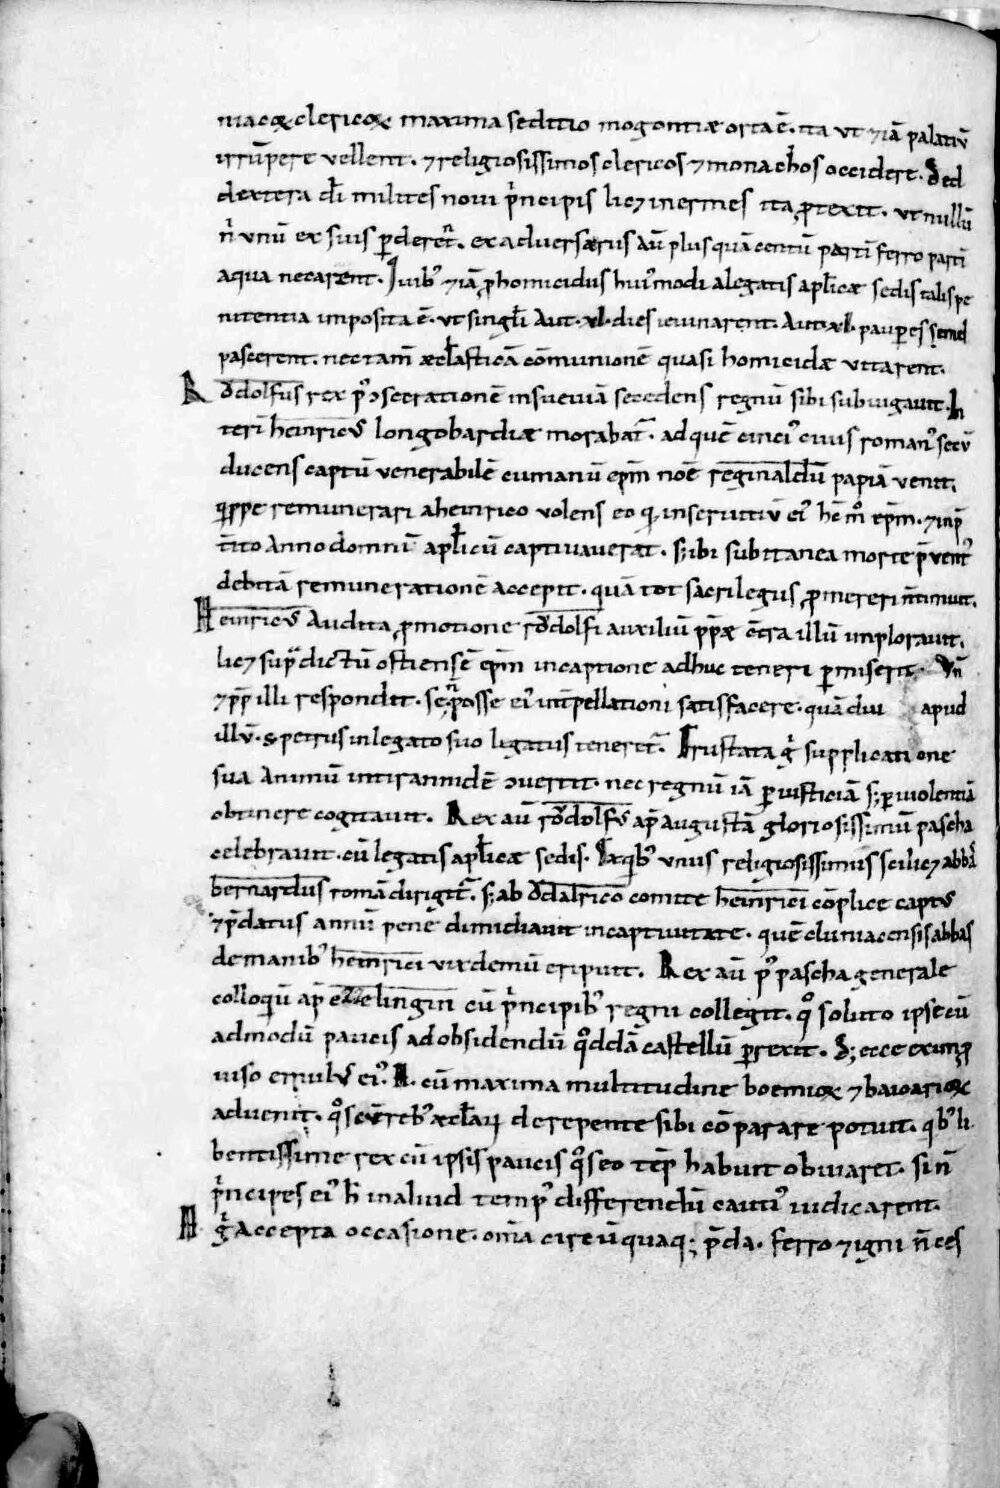 niacoꝝ clericoꝝ maxima seditio mogontiæ orta ē. ita ut ⁊iā palatiū
irrūpere vellent. ⁊ religiosissimos clericos ⁊ monachos occidere. Sed
dextera dī milites novi p̍ncipis lic⁊ inermes ita ꝓtexit. ut nullū
n̄ unū ex suis ꝑderet᷑. ex adversariis aū plusquā centū partī ferro partī
aqua necarent. Quib᷒ ⁊iā ꝓ homicidiis hui᷒modi a legatis ap̄licæ sedis talis pe
nitentia imposita ē. ut singl̄i aut .xl. dies ieiunarent. aut .xl. pauꝑes semel
pascerent. nec tam̄ æccl̄asticā cōmunionē quasi homicidæ vitarent.
Rǒdolfus rex p᷒ ↄsecrationē in sueviā secedens regnū sibi subiugavit. In
terī heinricus longobardiæ morabat᷑. ad quē cinci᷒ civis roman᷒ secū
ducens captū venerabilē cumanū ep̄m noē reginaldū papiā venit.
quippe remunerari a heinrico volens eo qͥ in servitiū ei᷒ hc̄ mͦ ep̄m. ⁊ in p̄
t̄ito anno domnū ap̄licū captivaverat. sꝫ ibi subitanea morte p̄vent᷒
debitā remunerationē accepit. quā tot sacrilegus ꝓmereri n̄ timuit.
Heinricus audita ꝓmotione rǒdolfi auxiliū p̄p̄æ cͦtra illū imploravit.
lic⁊ sup̄dictū ostiensē ep̄m in captione adhuc teneri ꝑmiserit. Un̄
⁊ p̄p̄ illi respondit. se n̄ posse ei᷒ int̄pellationi satisfacere. quādiu apud
illū .s. petrus in legato suo ligatus teneret᷑. Frustata gͥ supplicatione
sua animū in tirannidē ↄvertit. nec regnū iā ꝑ iusticiā sꝫ ꝑ violentiā
obtinere cogitavit. Rex aū rǒdolfus ap̄ augustā gloriosissimū pascha
celebravit. cū legatis ap̄licæ sedis. Ex qͥb᷒ unus religiosissimus scilic⁊ abbas
bernardus romā dirigit᷑. sꝫ ab ǒdalrico comite heinrici cōplice captus
⁊ p̄datus annū pene dimidiavit in captivitate. quē cluniacensis abbas
de manib᷒ heinrici vix demū eripuit. Rex aū p᷒ pascha generale
colloquiū ap̄ ezzelingin cū p̍ncipib᷒ regni collegit. qͦ soluto ipse cū
admodū paucis ad obsidendū qͦddā castellū ꝑrexit. Sꝫ ecce ex inꝓ
viso emulus ei᷒ .H. cū maxima multitudine boemioꝝ ⁊ baioarioꝝ
advenit. qͦs
de repente sibi cōparare potuit. qͥb᷒ li
bentissime rex cū ipsis paucis qͦs eo tēp̄ habuit obviaret. si n̄
p̍ncipes ei᷒ h̄ in aliud temp᷒ differendū cauti᷒ iudicarent.
H. gͥ accepta occasione. om̄a circūquaqꝫ p̄da. ferro ⁊ igni n̄ ces